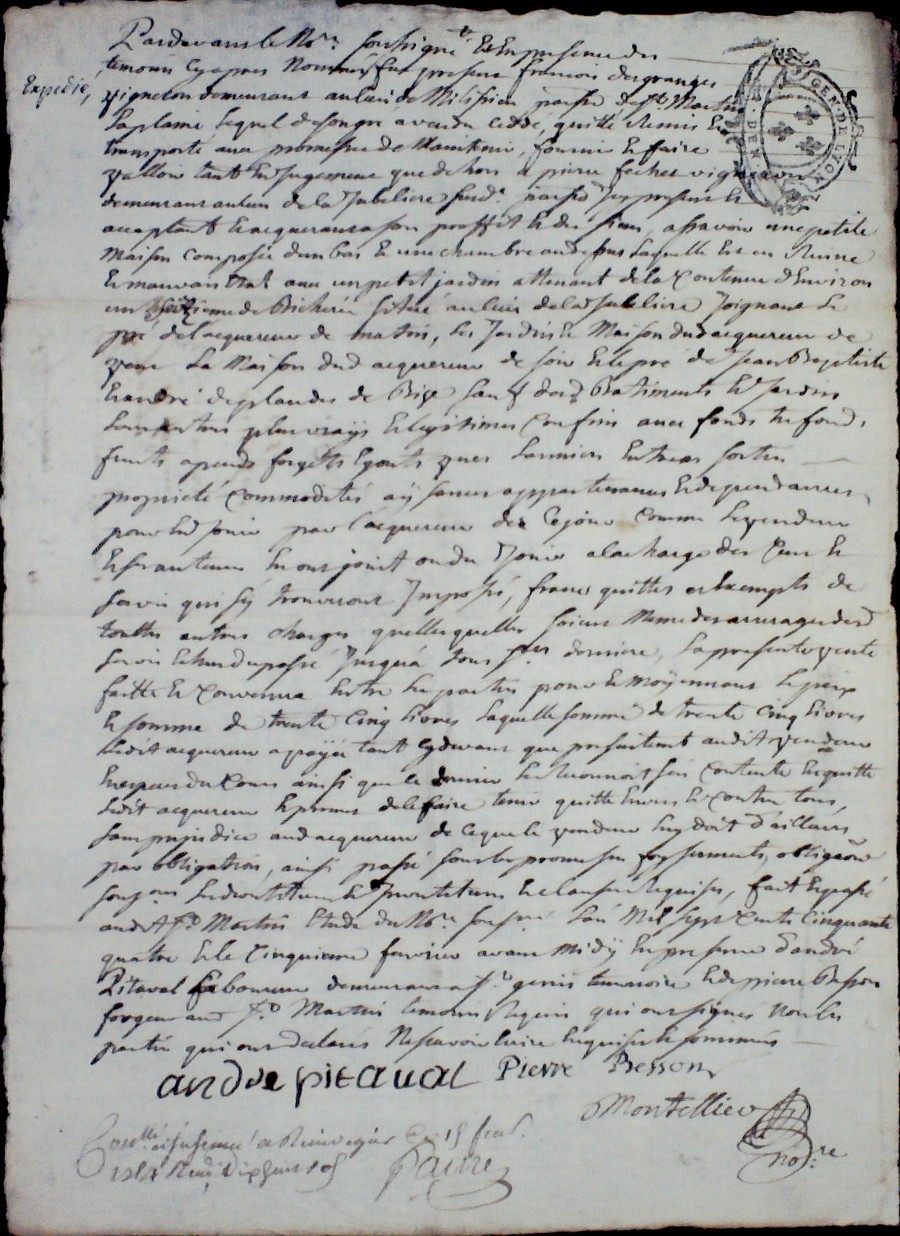 Pardevant le No.re soussigné Et En presence des
temoins cy apres Nommés fut present francois desgranges
Expedié,
vigneron demeurant au lieu de Milissieu parsse de St Martin
La plaine Lequel de son gre a vendu ceddé, quitté Remis Et
transporte avec promesse de Maintenir, fournir Et faire
valloir tant En Jugement que dehors a pierre vigneron
GEN. DE LYON
demeurant au lieu de la Jubeliere susd. parsse Icy present Et
acceptant Et acquerant a son proffit Et des siens, assavoir une petite
Maison Composée d'un bas Et une chambre au dessus Laquelle Est en Ruine
Et mauvais Etat avec un petit jardin attenant de la Contenue d'Environ
un de Bicherée Situé au lieu de la Jubeliere Joignant Le
pré de l'acquereur de matin, Les Jardin Et Maison dud acquereur de
vent La Maison dud acquereur de soir Et le pré de Jean Baptiste
Et andré desplandes de Bize sauf desd Batiments Et Jardin
Leurs autres plus vrays Et legitimes Confins avec fonds trefonds
fruits apends forgetts Egouts vues Larmiers Entrées sorties
proprieté Commodités aysances appartenances Et dependances,
pour En Jouir par l'acquereur des Ce jour Comme Le vendeur
Et ses auteurs En ont jouit ou du Jouir a la charge des Cens Et
servis qui s'y trouveront Imposés, francs quittes et Exempts de
touttes autres charges quelles quelles soient Meme des arrerages desd
servis Et du passé Jusqu'à tous sts derniere, La presente vente
faitte Et Convenue Entre Les parties pour Et Moyennant Le prix
Et somme de trente Cinq Livres Laquelle somme de trente Cinq Livres
Ledit acquereur a payée tant cy devant que presentement audit vendeur
En especes du Cours ainsi que le dernier Le Reconnoit s'en Contente En quitte
Ledit acquereur Et promet de le faire tenir quitte Envers Et Contre tous,
sans prejudice aud acquereur de ce que le vendeur luy doit d'ailleurs
par obligation, ainsi passé sous les promesses foy serments, obligaon
soums Et Clauses Requises, fait Et passé
audit St Martin Etude du No.re soussné L'an Mil sept Cents Cinquante
quatre Et le Cinquieme fevrier avant Midy En presence d'andré
Pitaval Laboureur demeurant a St genis terrenoire Et de pierre Besson
forgeur aud St Martin temoins Requis qui ont signés non les
parties qui ont declarés Ne scavoir Ecrire Enquis Et sommés
andre pitaval Pierre Besson
Montellier
no.re
Conllé a Rive de gier Ce 15 fevr.
1754 Reçu dix sept sols
faure